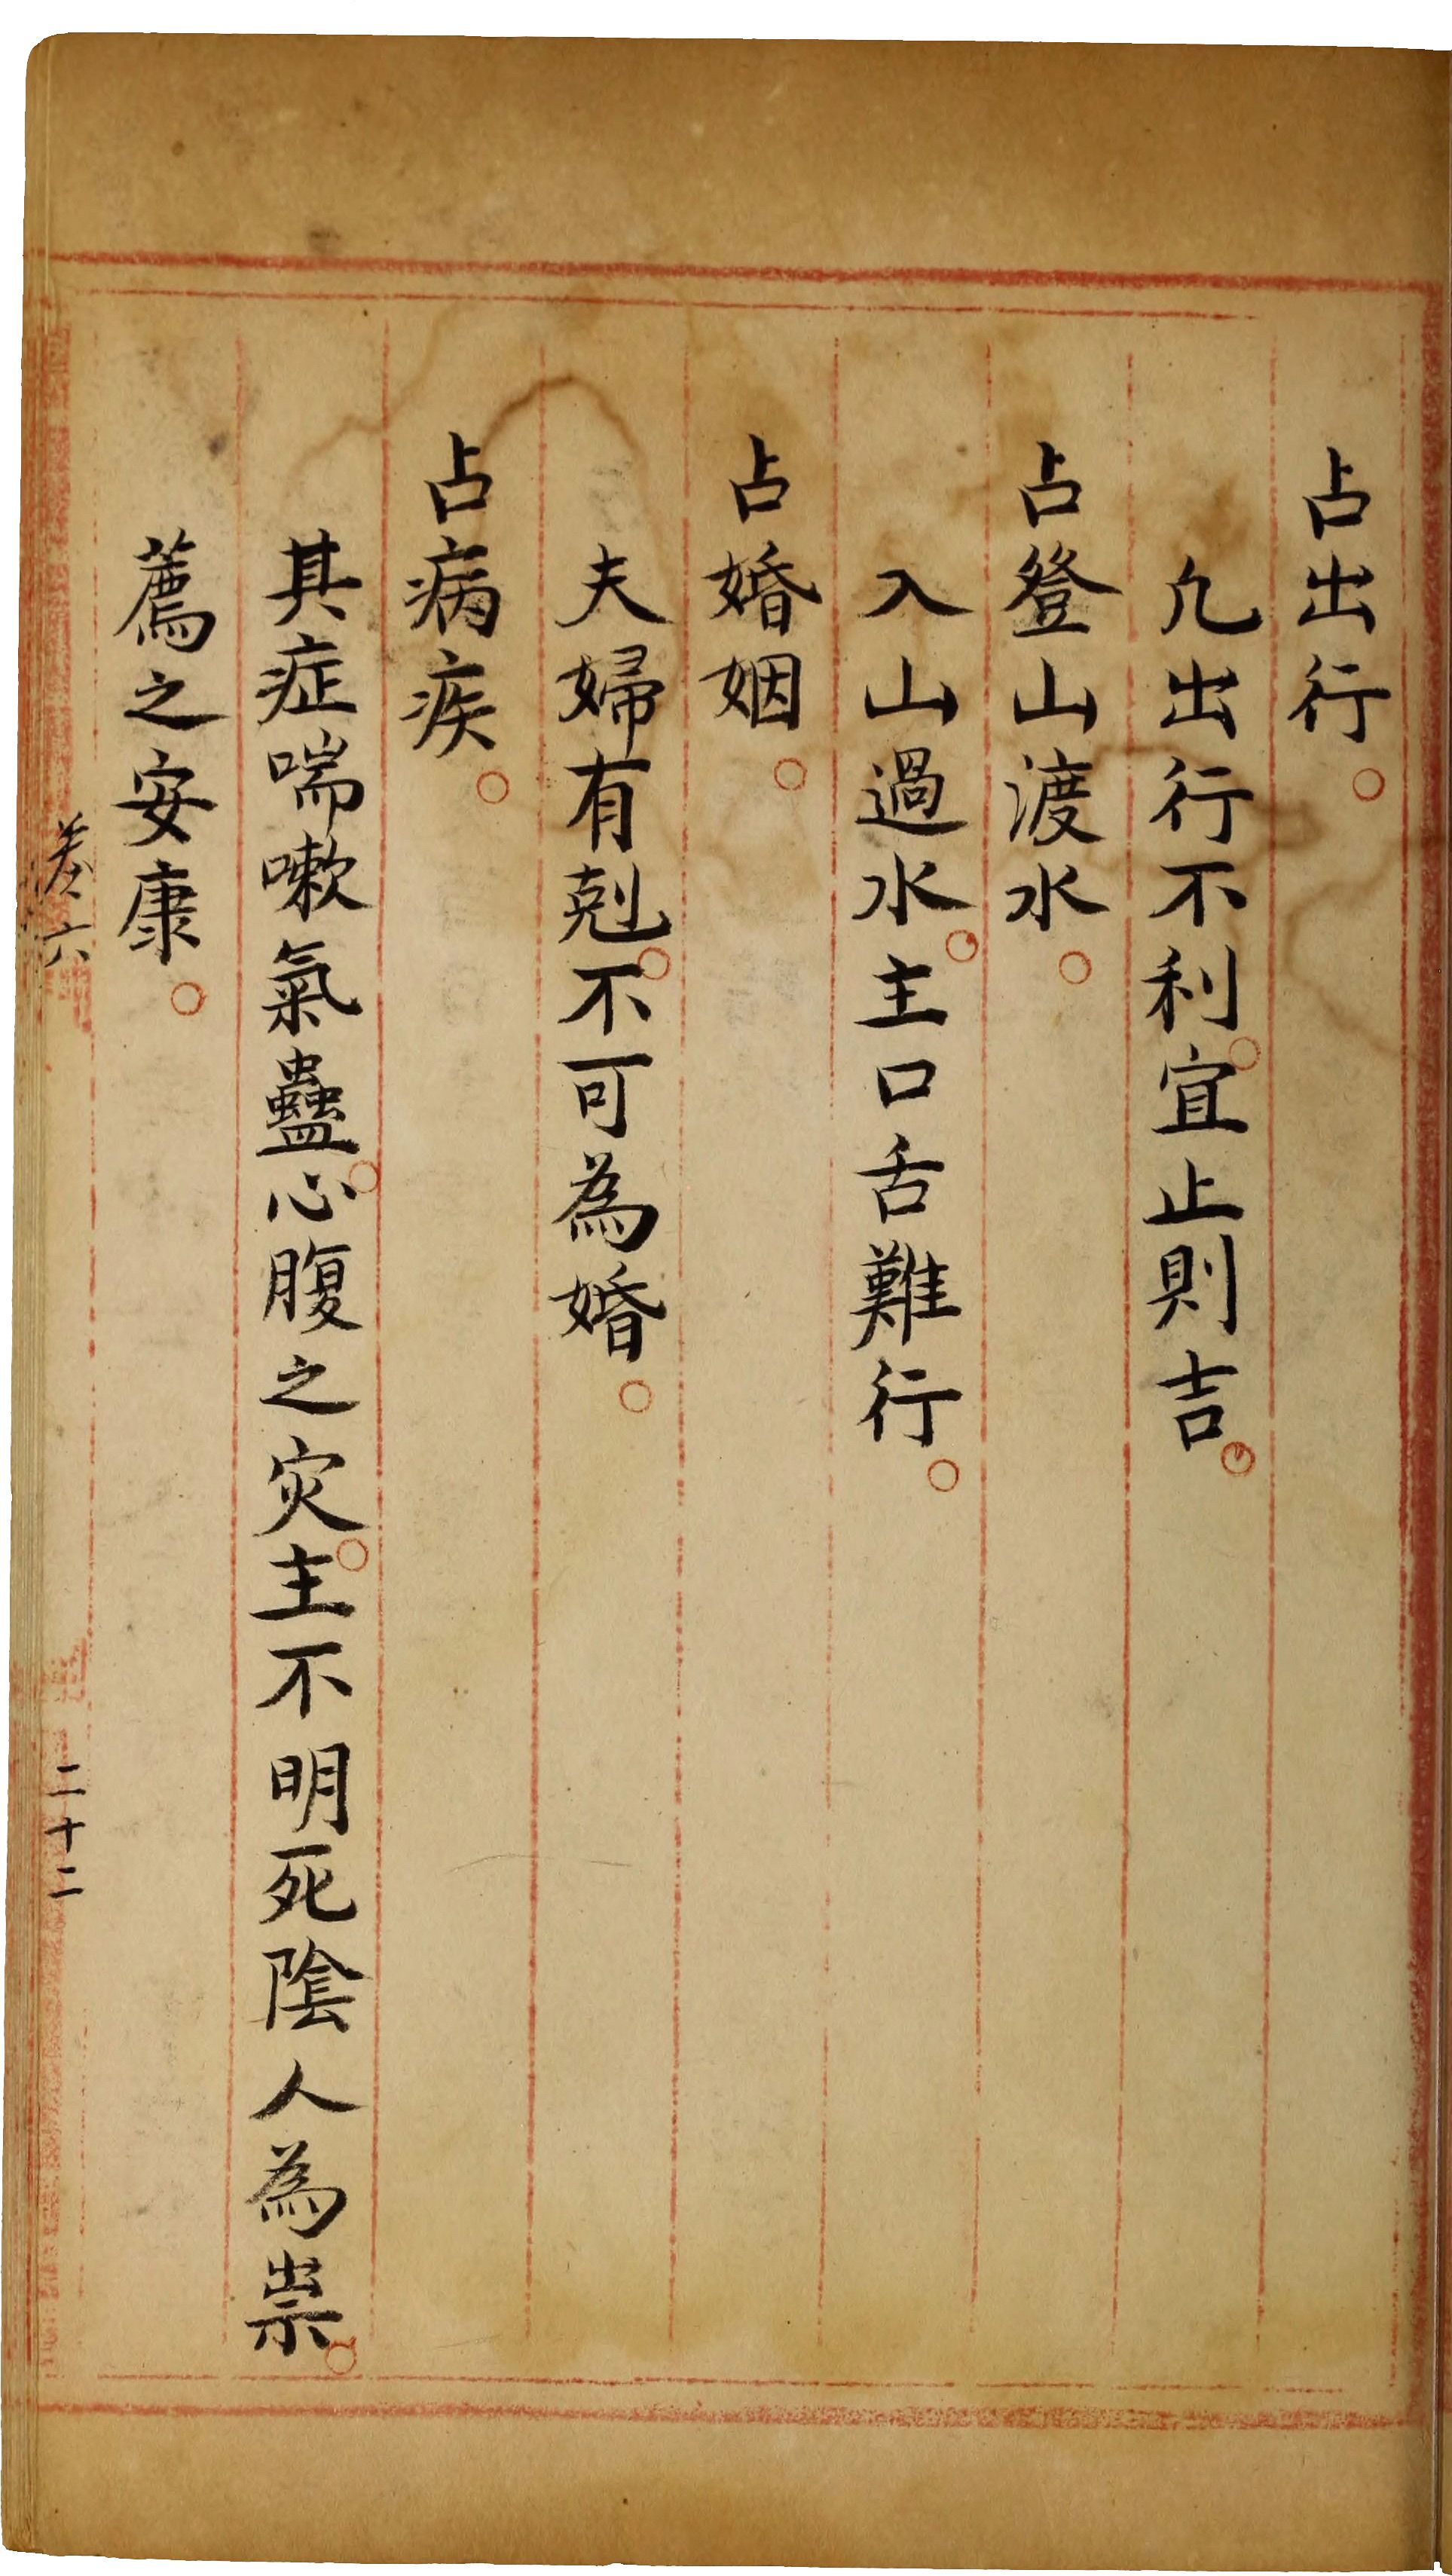 占出行。
凢出行不利。宜止則吉。
占登山渡水。
入山過水。主口舌難行。
占婚姻。
夫婦有剋。不可為婚。
占病疾。
其症喘嗽氣蠱。心腹之灾。主不明死陰人為祟。
薦之安康。
卷六
二十二